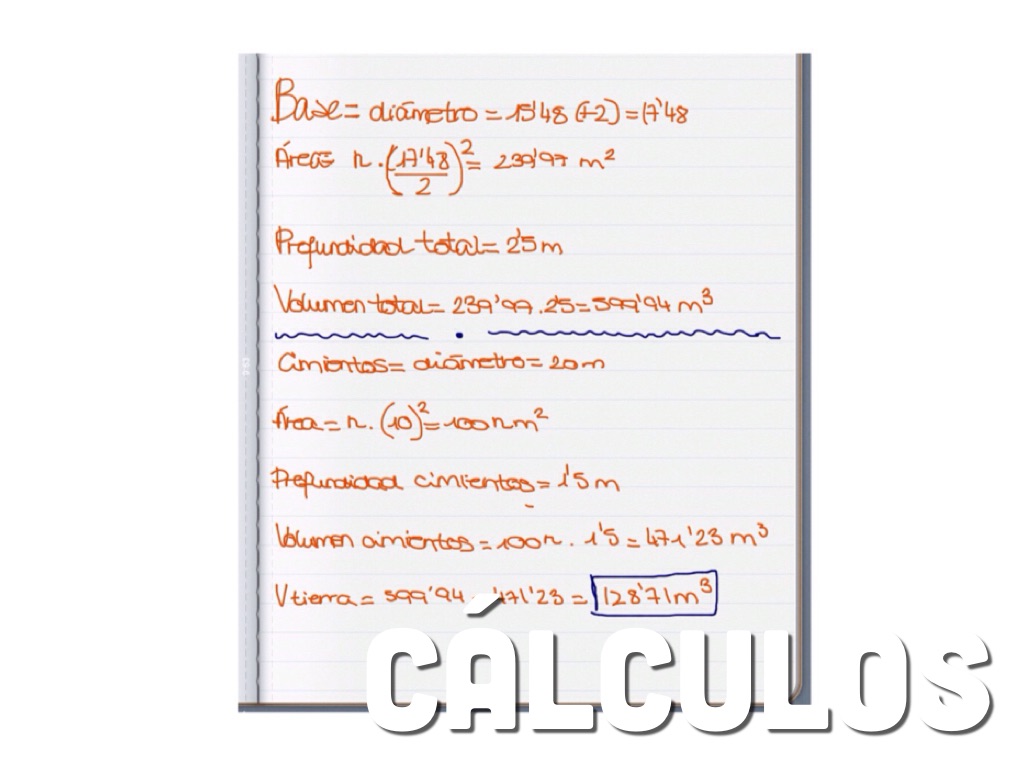 Base = diámetro = 15'48 (+2) = 17'48
Área = π · (17'48/2)² = 239'97 m²
Profundidad total = 2'5 m
Volumen total = 239'97 · 2'5 = 599'94 m³
Cimientos = diámetro = 20 m
Área = π · (10)² = 100π m²
Profundidad cimientos = 1'5 m
Volumen cimientos = 100π · 1'5 = 471'23 m³
V tierra = 599'94 - 471'23 = 128'71 m³
CÁLCULOS